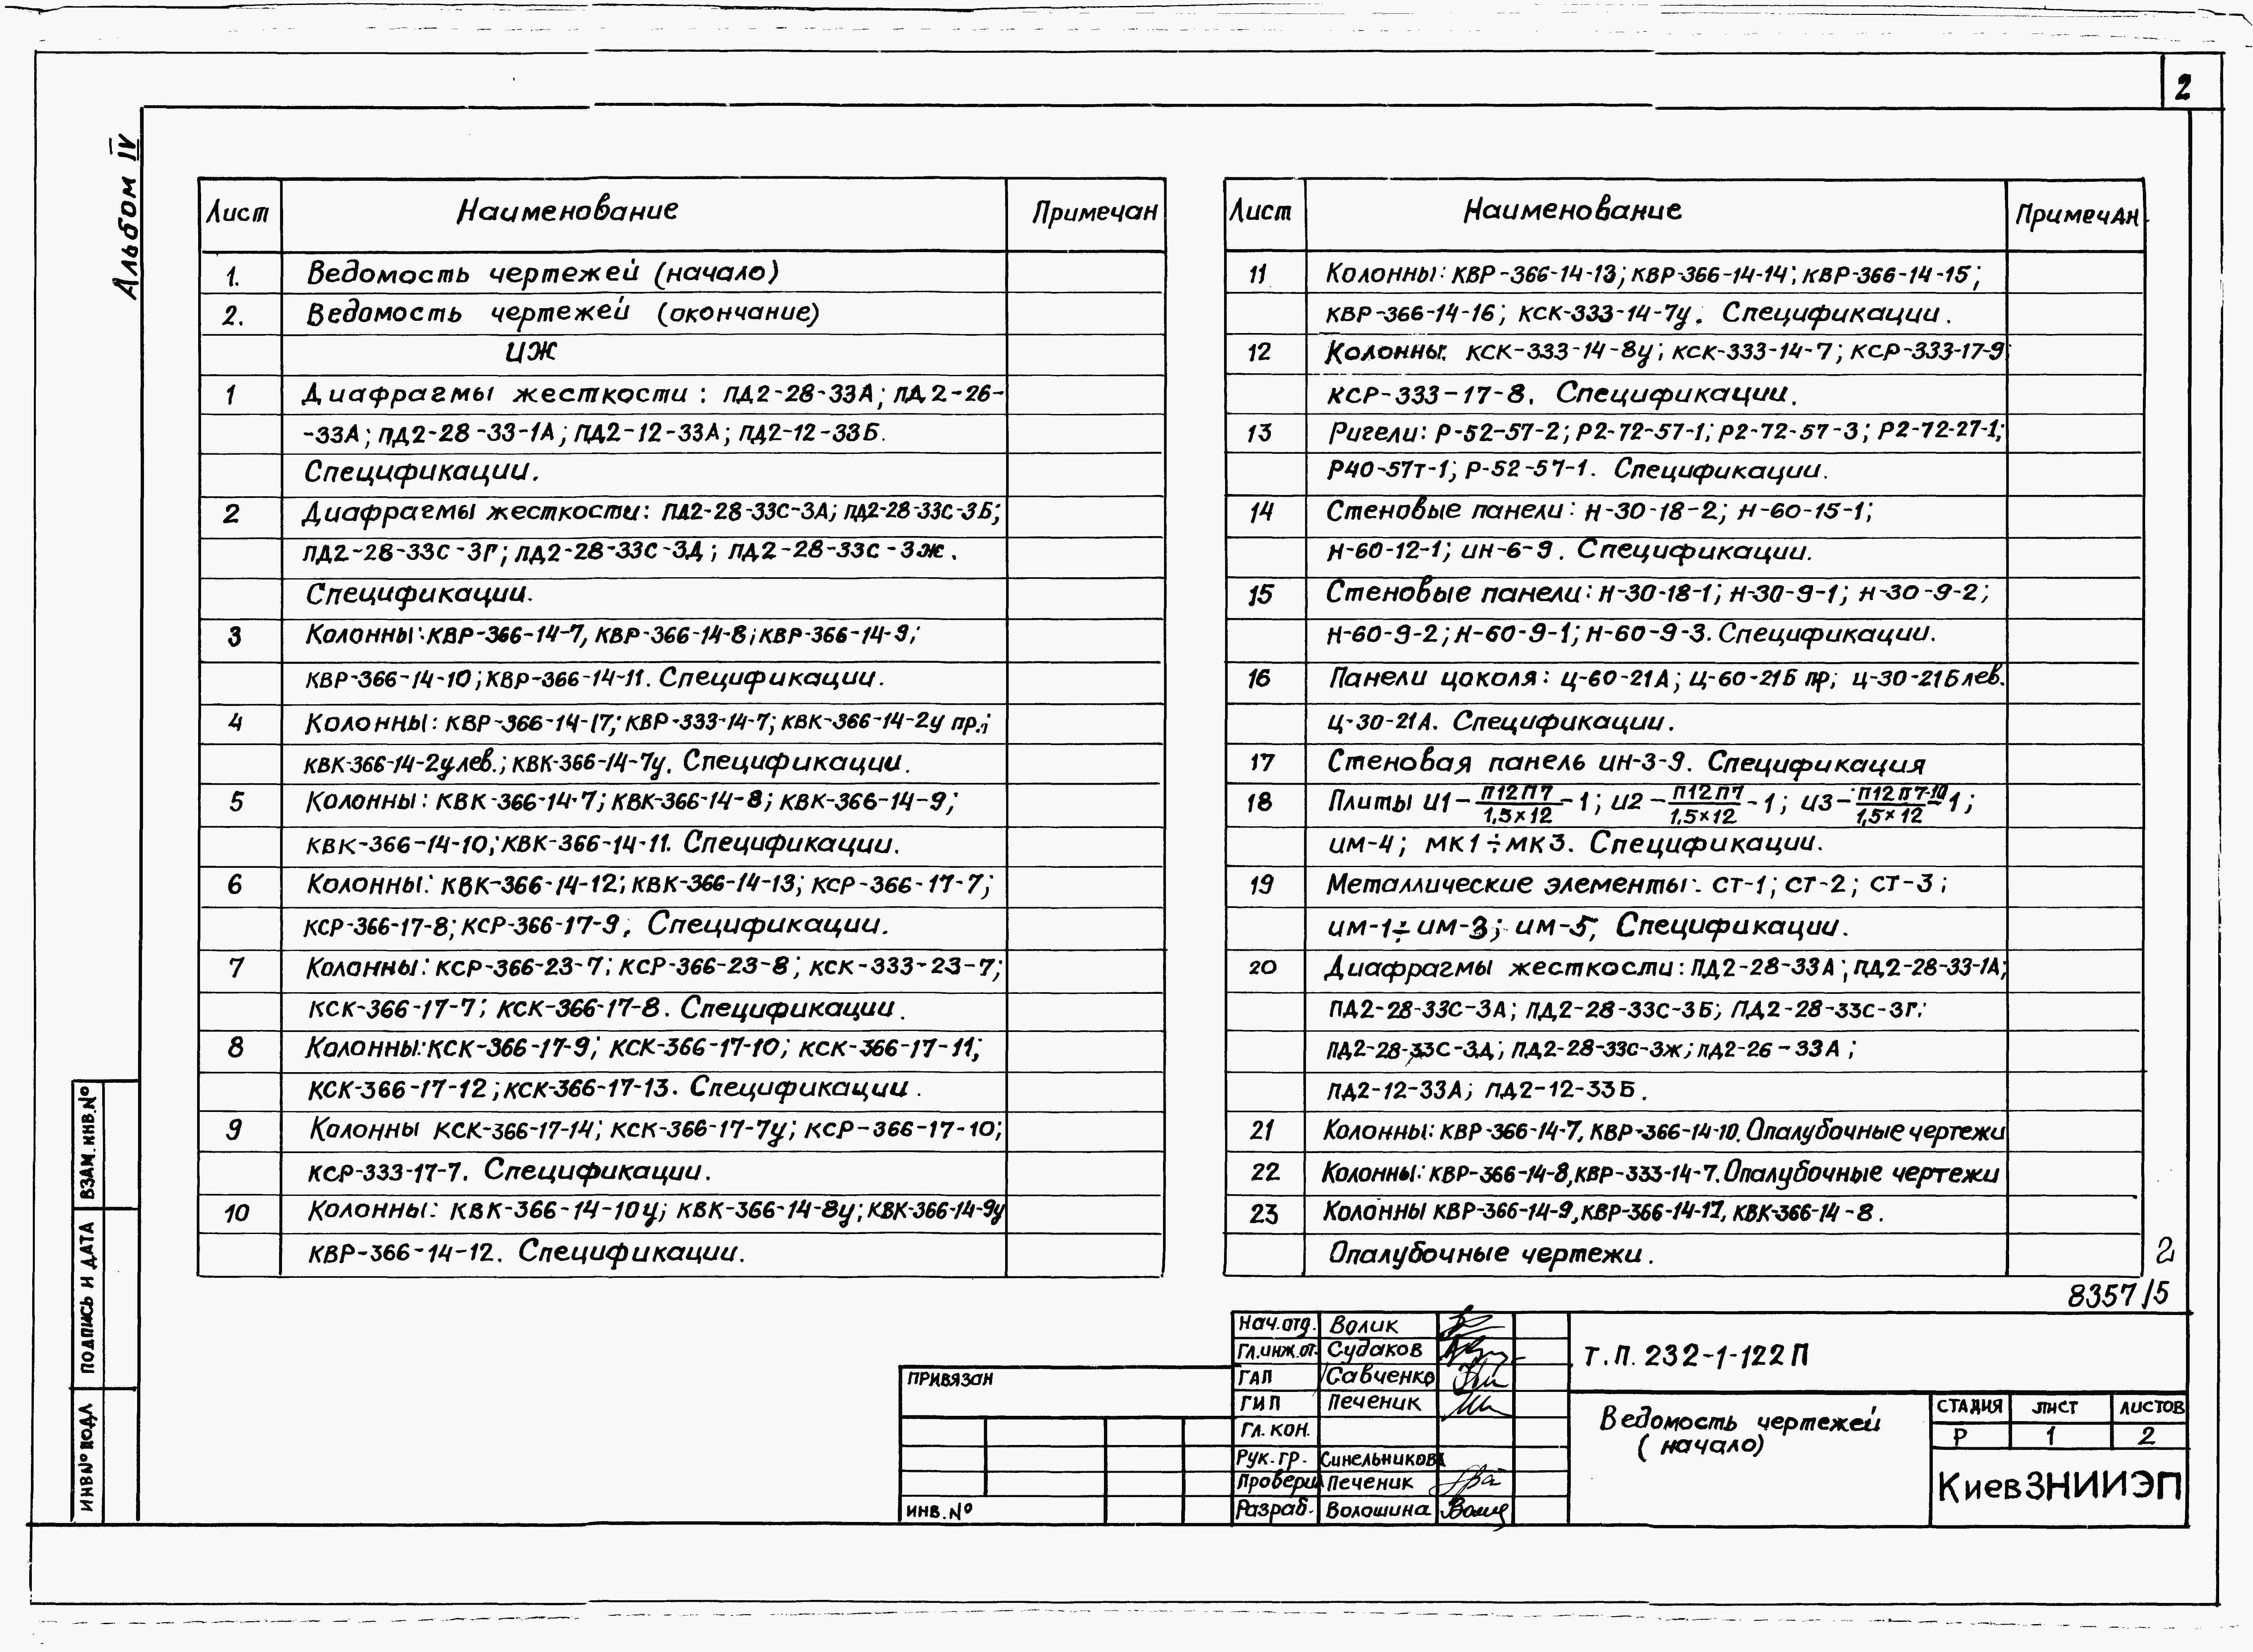 2
Альбом IV
Лист Наименование Примечан
1. Ведомость чертежей (начало)
2. Ведомость чертежей (окончание)
ИЖ
1 Диафрагмы жесткости: ПД2-28-33А; ПД2-26-
-33А; ПД2-28-33-1А; ПД2-12-33А; ПД2-12-33Б.
Спецификации.
2 Диафрагмы жесткости: ПД2-28-33С-3А; ПД2-28-33С-3Б;
ПД2-28-33С-3Г; ПД2-28-33С-3Д; ПД2-28-33С-3Ж.
Спецификации.
3 Колонны: КВР-366-14-7, КВР-366-14-8; КВР-366-14-9;
КВР-366-14-10; КВР-366-14-11. Спецификации.
4 Колонны: КВР-366-14-17; КВР-333-14-7; КВК-366-14-2у пр.;
КВК-366-14-2у лев.; КВК-366-14-7у. Спецификации.
5 Колонны: КВК-366-14-7; КВК-366-14-8; КВК-366-14-9;
КВК-366-14-10; КВК-366-14-11. Спецификации.
6 Колонны: КВК-366-14-12; КВК-366-14-13; КСР-366-17-7;
КСР-366-17-8; КСР-366-17-9. Спецификации.
7 Колонны: КСР-366-23-7; КСР-366-23-8; КСК-333-23-7;
КСК-366-17-7; КСК-366-17-8. Спецификации.
8 Колонны: КСК-366-17-9; КСК-366-17-10; КСК-366-17-11;
КСК-366-17-12; КСК-366-17-13. Спецификации.
9 Колонны КСК-366-17-14; КСК-366-17-7у; КСР-366-17-10;
КСР-333-17-7. Спецификации.
10 Колонны: КВК-366-14-10у; КВК-366-14-8у; КВК-366-14-9у
КВР-366-14-12. Спецификации.
Лист Наименование Примечан
11 Колонны: КВР-366-14-13; КВР-366-14-14; КВР-366-14-15;
КВР-366-14-16; КСК-333-14-7у. Спецификации.
12 Колонны: КСК-333-14-8у; КСК-333-14-7; КСР-333-17-9;
КСР-333-17-8. Спецификации.
13 Ригели: Р-52-57-2; Р2-72-57-1; Р2-72-57-3; Р2-72-27-1;
Р40-57т-1; Р-52-57-1. Спецификации.
14 Стеновые панели: Н-30-18-2; Н-60-15-1;
Н-60-12-1; ИН-6-9. Спецификации.
15 Стеновые панели: Н-30-18-1; Н-30-9-1; Н-30-9-2;
Н-60-9-2; Н-60-9-1; Н-60-9-3. Спецификации.
16 Панели цоколя: Ц-60-21А; Ц-60-21Б пр; Ц-30-21Б лев.
Ц-30-21А. Спецификации.
17 Стеновая панель ИН-3-9. Спецификация
18 Плиты И1-П12П7/1,5×12-1; И2-П12П7/1,5×12-1; И3-П12П7-10/1,5×12-1;
ИМ-4; МК1÷МК3. Спецификации.
19 Металлические элементы: СТ-1; СТ-2; СТ-3;
ИМ-1÷ИМ-3; ИМ-5; Спецификации.
20 Диафрагмы жесткости: ПД2-28-33А; ПД2-28-33-1А;
ПД2-28-33С-3А; ПД2-28-33С-3Б; ПД2-28-33С-3Г;
ПД2-28-33С-3Д; ПД2-28-33С-3Ж; ПД2-26-33А;
ПД2-12-33А; ПД2-12-33Б.
21 Колонны: КВР-366-14-7, КВР-366-14-10. Опалубочные чертежи
22 Колонны: КВР-366-14-8, КВР-333-14-7. Опалубочные чертежи
23 Колонны КВР-366-14-9, КВР-366-14-17, КВК-366-14-8.
Опалубочные чертежи.
2
8357/5
ИНВ№ПОДЛ ПОДПИСЬ И ДАТА ВЗАМ.ИНВ.№
ПРИВЯЗАН
ИНВ.№
Нач.отд. Волик
Гл.инж.от. Судаков
ГАП Савченко
ГИП Печеник
Гл. кон.
Рук.гр. Синельникова
Проверил Печеник
Разраб. Волошина
Т.П. 232-1-122П
Ведомость чертежей
(начало)
СТАДИЯ ЛИСТ ЛИСТОВ
Р 1 2
КиевЗНИИЭП